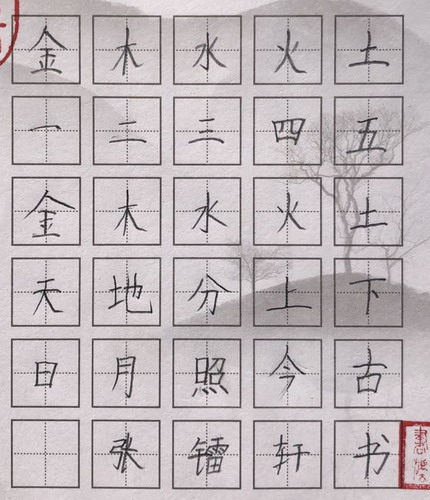 金木水火土
一二三四五
金木水火土
天地分上下
日月照今古
张镭轩书